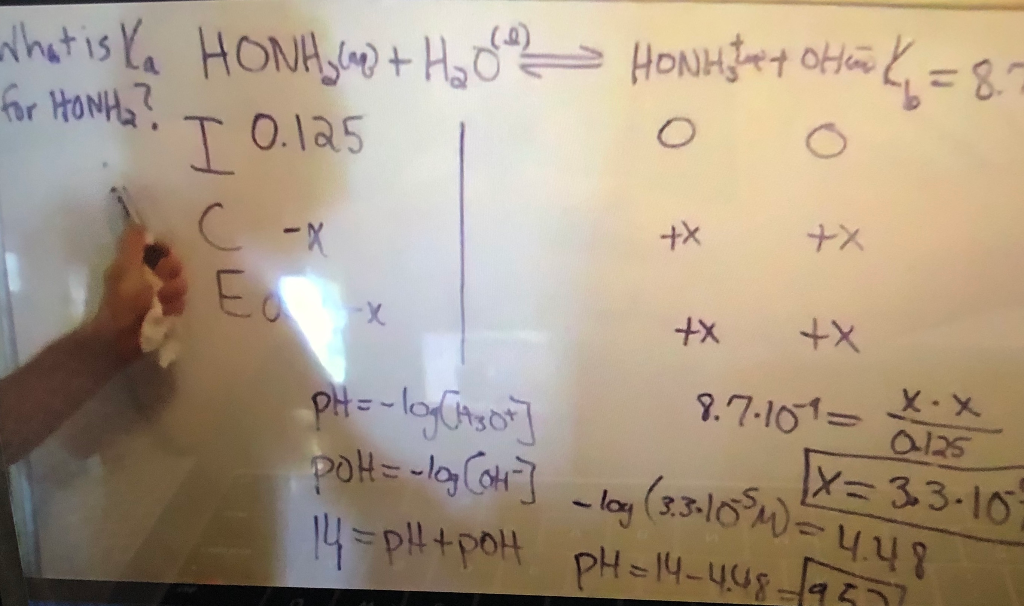 What is Ka
for HONH₂?
HONH₂(aq) + H₂O(l) ⇌ HONH₃⁺(aq) + OH⁻(aq) Kb = 8.7
I 0.125 0 0
C -x +x +x
E -x +x +x
pH = -log[H₃O⁺]
pOH = -log[OH⁻]
14 = pH + pOH
8.7·10⁻⁹ = x·x / 0.125
x = 3.3·10
-log(3.3·10⁻⁵M) = 4.48
pH = 14 - 4.48 = 9.52